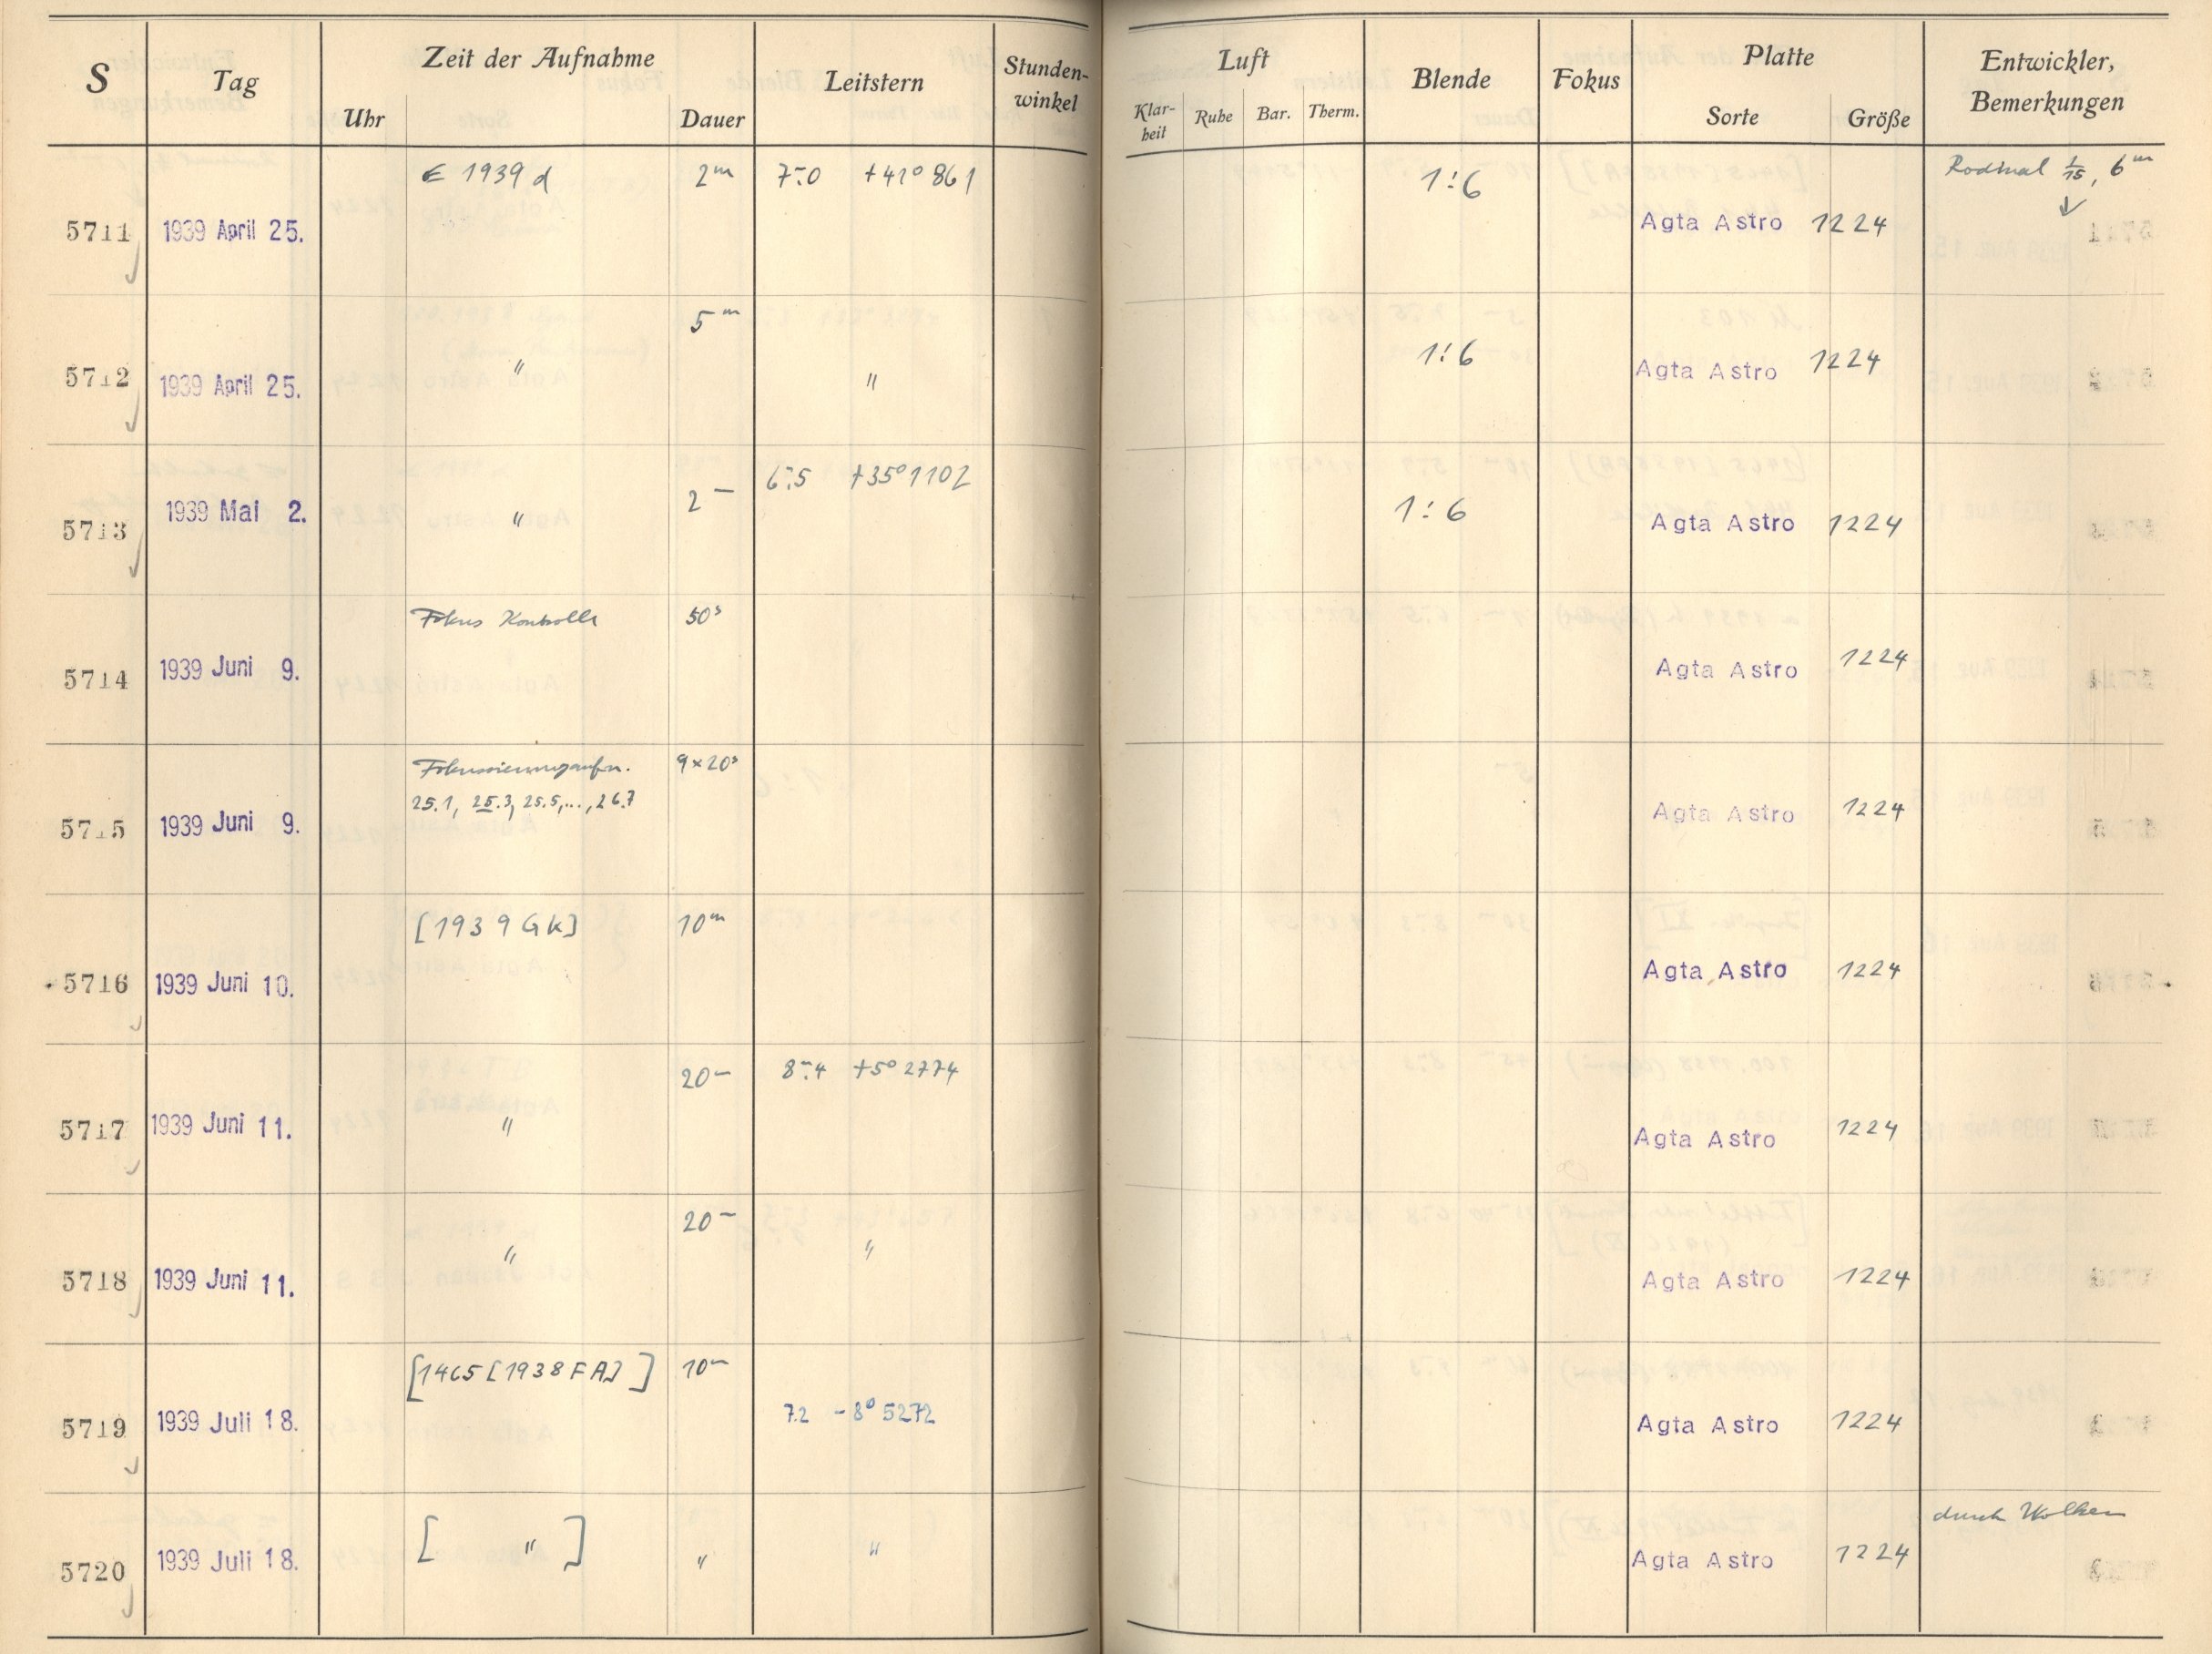 S Tag Zeit der Aufnahme Leitstern Stunden-winkel Luft Blende Fokus Platte Entwickler, Bemerkungen
Uhr Dauer Klar-heit Ruhe Bar. Therm. Sorte Größe
5711 1939 April 25. 1939 d 2m 7m.0 +41° 861 1:6 Agfa Astro 1224 Rodinal 1/15, 6m
5712 1939 April 25. " 5m " 1:6 Agfa Astro 1224
5713 1939 Mai 2. " 2m 6m.5 +35° 1102 1:6 Agfa Astro 1224
5714 1939 Juni 9. Fokus Kontrolle 50s Agfa Astro 1224
5715 1939 Juni 9. Fokussierungsaufn. 9×20s Agfa Astro 1224
25.1, 25.3, 25.5,..., 26.7
5716 1939 Juni 10. [1939 GK] 10m Agfa Astro 1224
5717 1939 Juni 11. " 20m 8m.4 +5° 2774 Agfa Astro 1224
5718 1939 Juni 11. " 20m " Agfa Astro 1224
5719 1939 Juli 18. [1465 [1938 FA]] 10m 7.2 -8° 5272 Agfa Astro 1224
5720 1939 Juli 18. [ " ] " " Agfa Astro 1224 durch Wolken